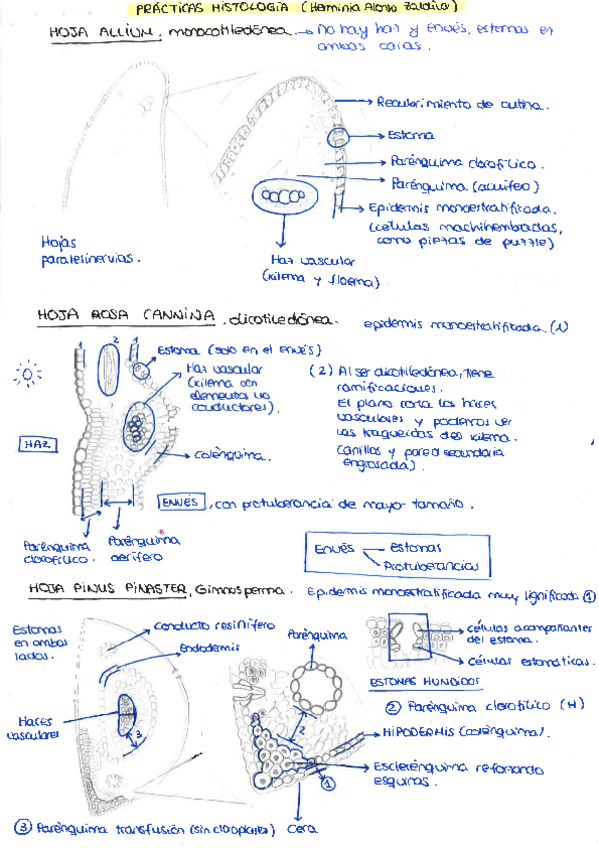 PRÁCTICAS HISTOLOGÍA (Herminia Alonso Zaldivar)
HOJA ALLIUM, monocotiledónea. → No hay haz y envés, estomas en
ambas caras.
Recubrimiento de cutina.
Estoma
Parénquima clorofílico.
Parénquima (acuífeo)
Epidermis monoestratificada.
(células machihembradas,
como piezas de puzzle)
Hojas
paralelinervias.
Haz vascular
(xilema y floema)
HOJA ROSA CANNINA, dicotiledónea.
epidermis monoestratificada. (1)
1
2
1
Estoma (solo en el envés)
Haz vascular
(xilema con
elementos no
conductores).
(2) Al ser dicotiledónea, tiene
ramificaciones.
El plano corta los haces
vasculares y podemos ver
las traqueidas del xilema.
(anillos y pared secundaria
engrosada).
HAZ
colénquima.
ENVÉS, con protuberancia de mayor tamaño.
Parénquima
clorofílico.
Parénquima
aerífero
Envés
Estomas
Protuberancias
HOJA PINUS PINASTER, Gimnosperma.
Epidermis monoestratificada muy lignificada (1)
Estomas
en ambos
lados.
Conducto resinífero
Endodermis
Parénquima
células acompañantes
del estoma.
células estomáticas.
ESTOMAS HUNDIDOS
(2) Parénquima clorofílico (H)
Haces
vasculares
3
2
HIPODERMIS (colénquima).
Esclerénquima reforzando
esquinas.
(1)
(3) Parénquima transfusión (sin cloroplastos)
cera